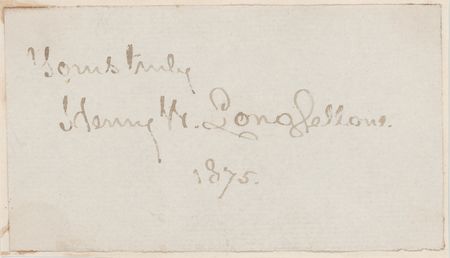 Yours truly
Henry W. Longfellow.
1875.